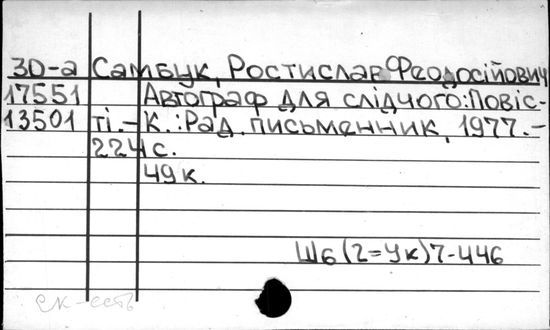 30-а Самбук, Ростислав Феодосійович
17551 Автограф для слідчого: Повіс-
13501 ті.- К.: Рад. письменник, 1977.-
224 с.
49 к.
Ш6(2=Ук)7-446
ск-есть